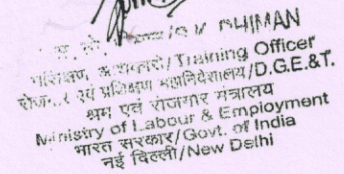 DHIMAN
प्रशिक्षण अधिकारी/Training Officer
रोजगार एवं प्रशिक्षण महानिदेशालय/D.G.E.&T.
श्रम एवं रोजगार मंत्रालय
Ministry of Labour & Employment
भारत सरकार/Govt. of India
नई दिल्ली/New Delhi